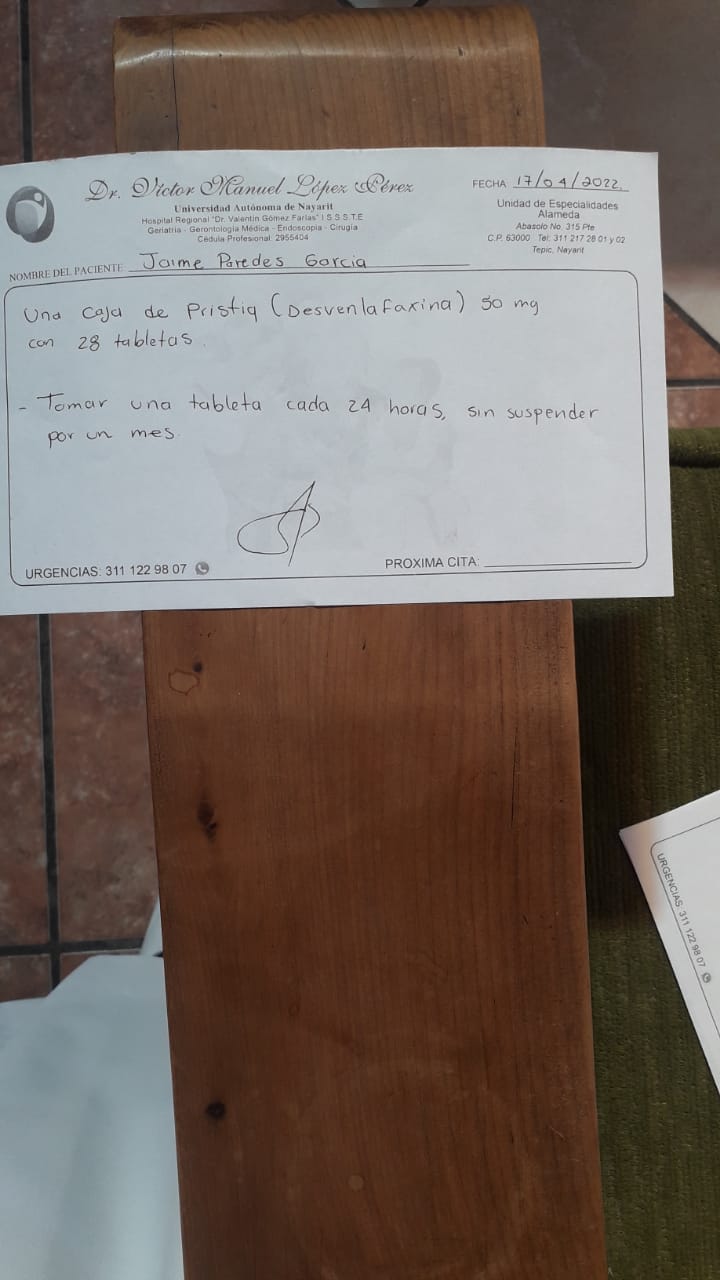 Dr. Víctor Manuel López Pérez
Universidad Autónoma de Nayarit
Hospital Regional "Dr. Valentín Gómez Farías" I.S.S.S.T.E
Geriatría - Gerontología Médica - Endoscopia - Cirugía
Cédula Profesional: 2955404
FECHA 17/04/2022
Unidad de Especialidades
Alameda
Abasolo No. 315 Pte
C.P. 63000 Tel: 311 217 28 01 y 02
Tepic, Nayarit
NOMBRE DEL PACIENTE Jaime Paredes Garcia
Una Caja de Pristiq (Desvenlafaxina) 50 mg
con 28 tabletas.
- Tomar una tableta cada 24 horas, sin suspender
por un mes.
URGENCIAS: 311 122 98 07
PROXIMA CITA:
URGENCIAS: 311 122 98 07